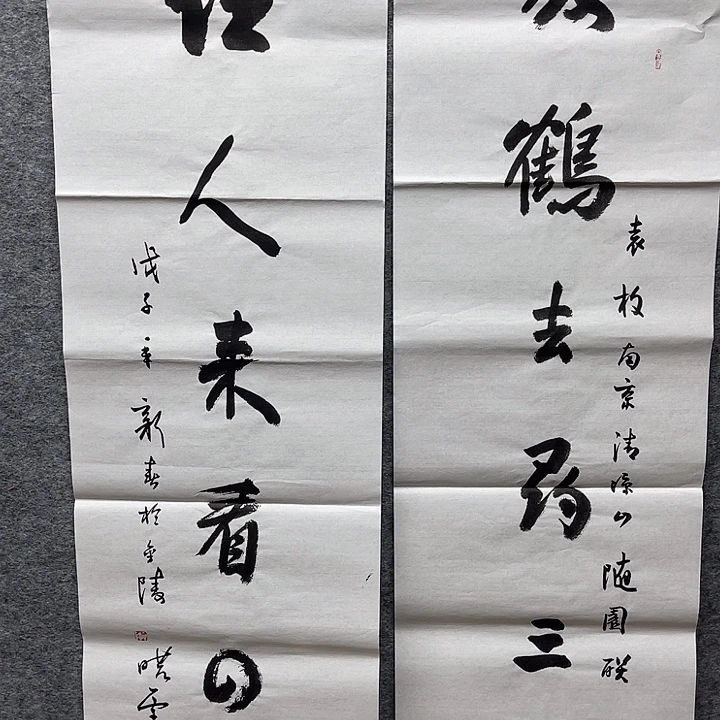 袁枚南京清凉山随園联
鶴去尋三
任人来看四
戊子年新春於金陵